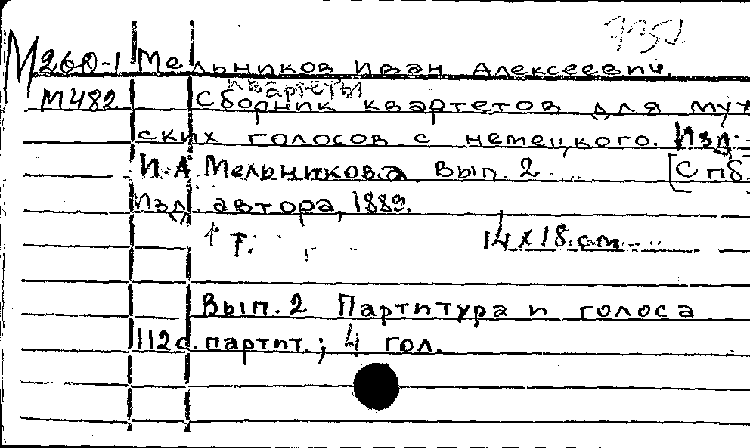 М260-1 Мельников Иван Алексеевич.
квартеты
М482 Сборник квартетов для муж
ских голосов с немецкого. Изд.
И. А. Мельникова Вып. 2 ... [Спб.
Изд. автора, 1889.
1 т. 14 x 18 cm
Вып. 2 Партитура и голоса
112 с. партит.; 4 гол.